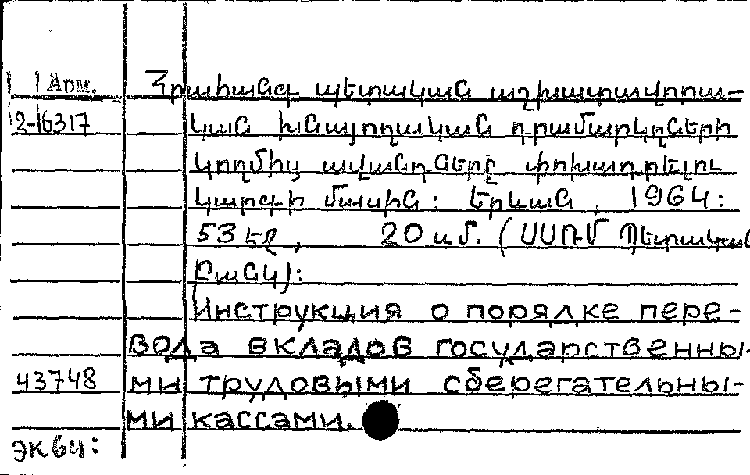 Арм. Հրահանգ պետական աշխատավորա-
2-16317 կան խնայողական դրամարկղների
կողմից ավանդները փոխադրելու
կարգի մասին: Երևան, 1964:
53 էջ, 20 սմ. (ՍՍՌՄ Պետական
Բանկ):
Инструкция о порядке пере-
вода вкладов государственны-
43748 ми трудовыми сберегательны-
ми кассами.
ЭК64: